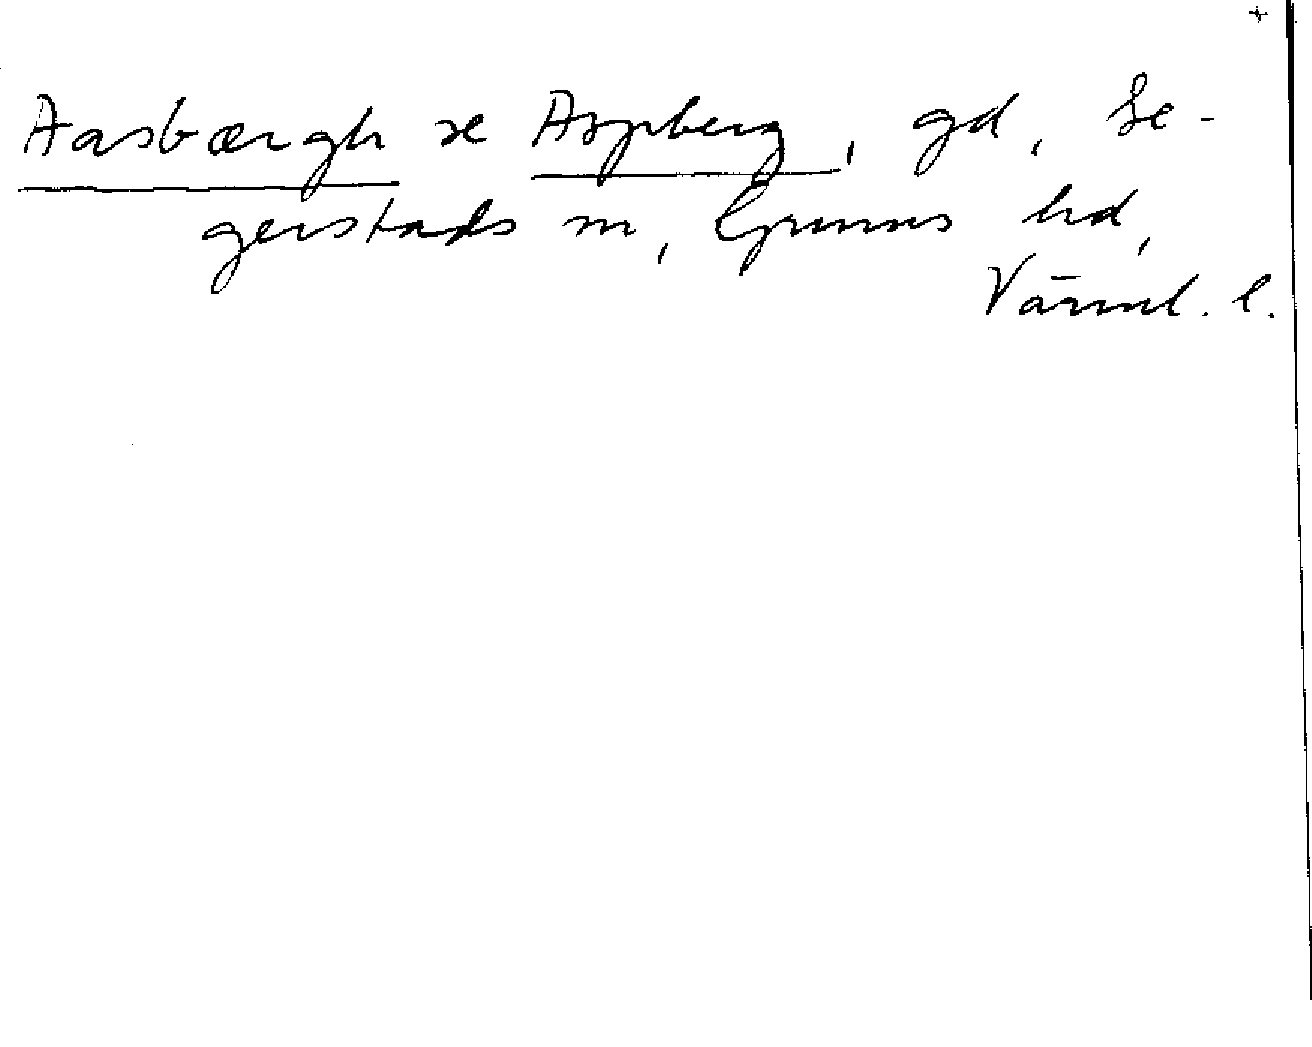 +
Aasbærgh se Aspberg, gd, Se-
gerstads sn, Grums hd,
Värml. l.